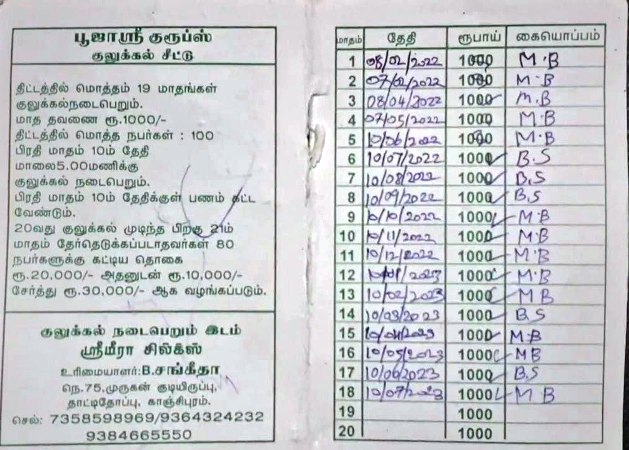 பூஜாஸ்ரீ குரூப்ஸ்
குலுக்கல் சீட்டு
திட்டத்தில் மொத்தம் 19 மாதங்கள்
குலுக்கல்நடைபெறும்.
மாத தவணை ரூ.1000/-
திட்டத்தில் மொத்த நபர்கள் : 100
பிரதி மாதம் 10ம் தேதி
மாலை5.00மணிக்கு
குலுக்கல் நடைபெறும்.
பிரதி மாதம் 10ம் தேதிக்குள் பணம் கட்ட
வேண்டும்.
20வது குலுக்கல் முடிந்த பிறகு 21ம்
மாதம் தேர்தெடுக்கப்படாதவர்கள் 80
நபர்களுக்கு கட்டிய தொகை
ரூ.20,000/- அதனுடன் ரூ.10,000/-
சேர்த்து ரூ.30,000/- ஆக வழங்கப்படும்.
குலுக்கல் நடைபெறும் இடம்
ஸ்ரீமீரா சில்க்ஸ்
உரிமையாளர்:B.சங்கீதா
நெ.75,முருகன் குடியிருப்பு,
தாட்டிதோப்பு, காஞ்சிபுரம்.
செல்: 7358598969/9364324232
9384665550
மாதம் தேதி ரூபாய் கையொப்பம்
1 08/02/2022 1000 M.B
2 07/02/2022 1000 M.B
3 08/04/2022 1000 M.B
4 07/05/2022 1000 M.B
5 10/06/2022 1000 M.B
6 10/07/2022 1000 B.S
7 10/08/2022 1000 B.S
8 10/09/2022 1000 B.S
9 10/10/2022 1000 M.B
10 10/11/2022 1000 M.B
11 10/12/2022 1000 M.B
12 10/01/2023 1000 M.B
13 10/02/2023 1000 M B
14 10/03/2023 1000 B.S
15 10/04/2023 1000 M.B
16 10/05/2023 1000 M B
17 10/06/2023 1000 B.S
18 10/07/2023 1000 M B
19 1000
20 1000